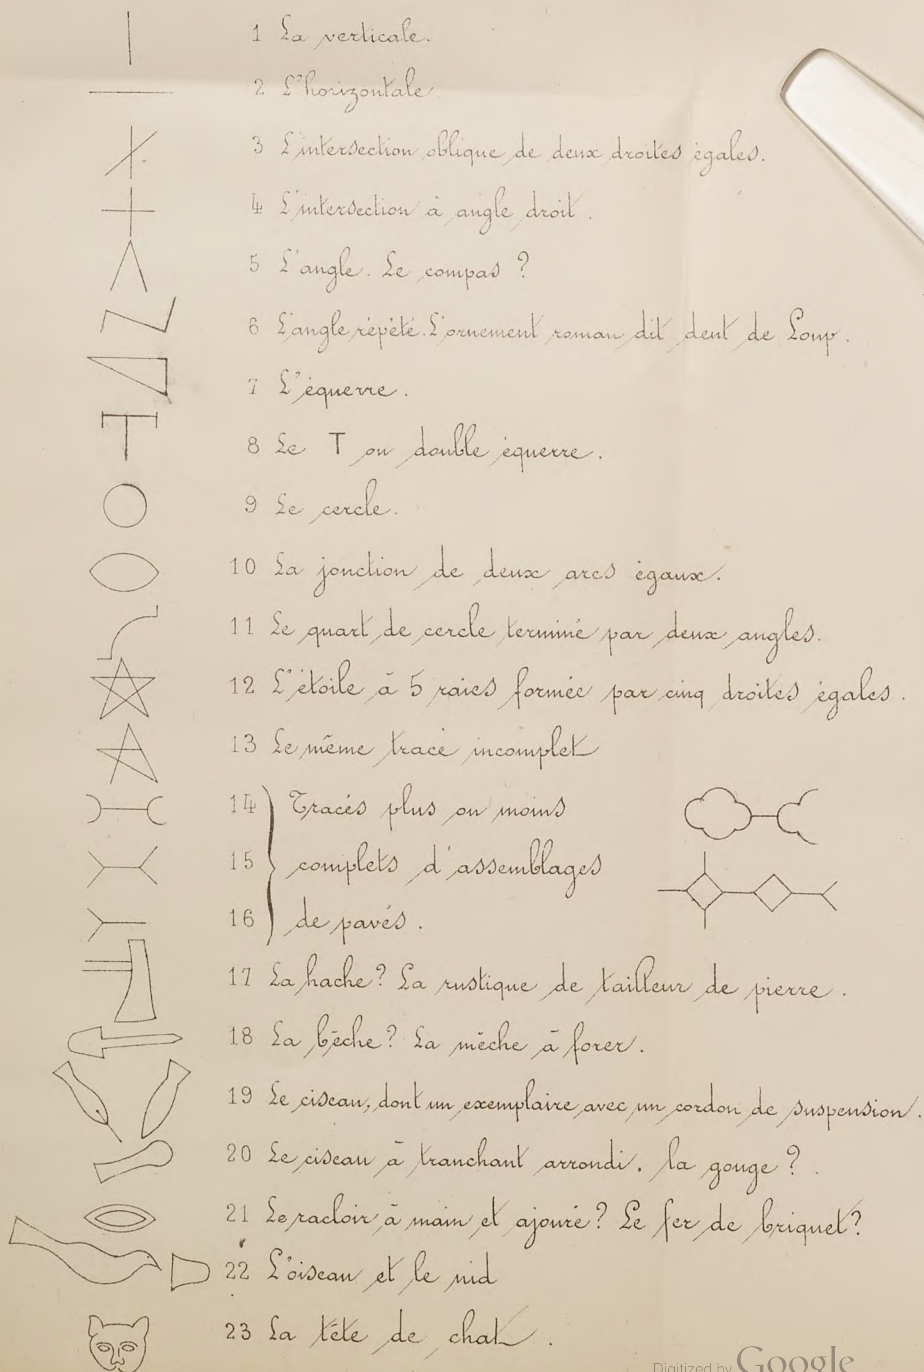 1 La verticale.
2 L'horizontale.
3 L'intersection oblique de deux droites égales.
4 L'intersection à angle droit.
5 L'angle. Le compas ?
6 L'angle répété. L'ornement roman dit dent de Loup.
7 L'équerre.
8 Le T ou double équerre.
9 Le cercle.
10 La jonction de deux arcs égaux.
11 Le quart de cercle terminé par deux angles.
12 L'étoile à 5 raies formée par cinq droites égales.
13 Le même tracé incomplet
14 Tracés plus ou moins
15 complets d'assemblages
16 de pavés.
17 La hache ? La rustique de tailleur de pierre.
18 La bêche ? La mèche à forer.
19 Le ciseau, dont un exemplaire avec un cordon de suspension.
20 Le ciseau à tranchant arrondi, la gouge ?
21 Le racloir à main et ajouré ? Le fer de briquet ?
22 L'oiseau et le nid
23 La tête de chat.
Digitized by Google